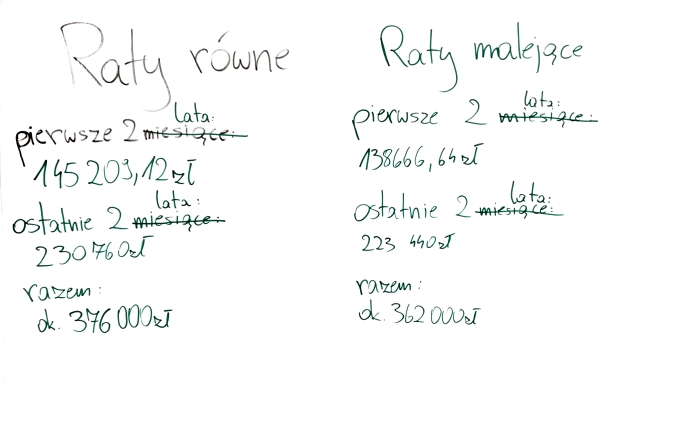 Raty równe
pierwsze 2 miesiące: lata:
145 209,12 zł
ostatnie 2 miesiące: lata:
230 760zł
razem:
ok. 376 000zł
Raty malejące
pierwsze 2 miesiące: lata:
138666,64 zł
ostatnie 2 miesiące: lata:
223 440 zł
razem:
ok. 362 000zł